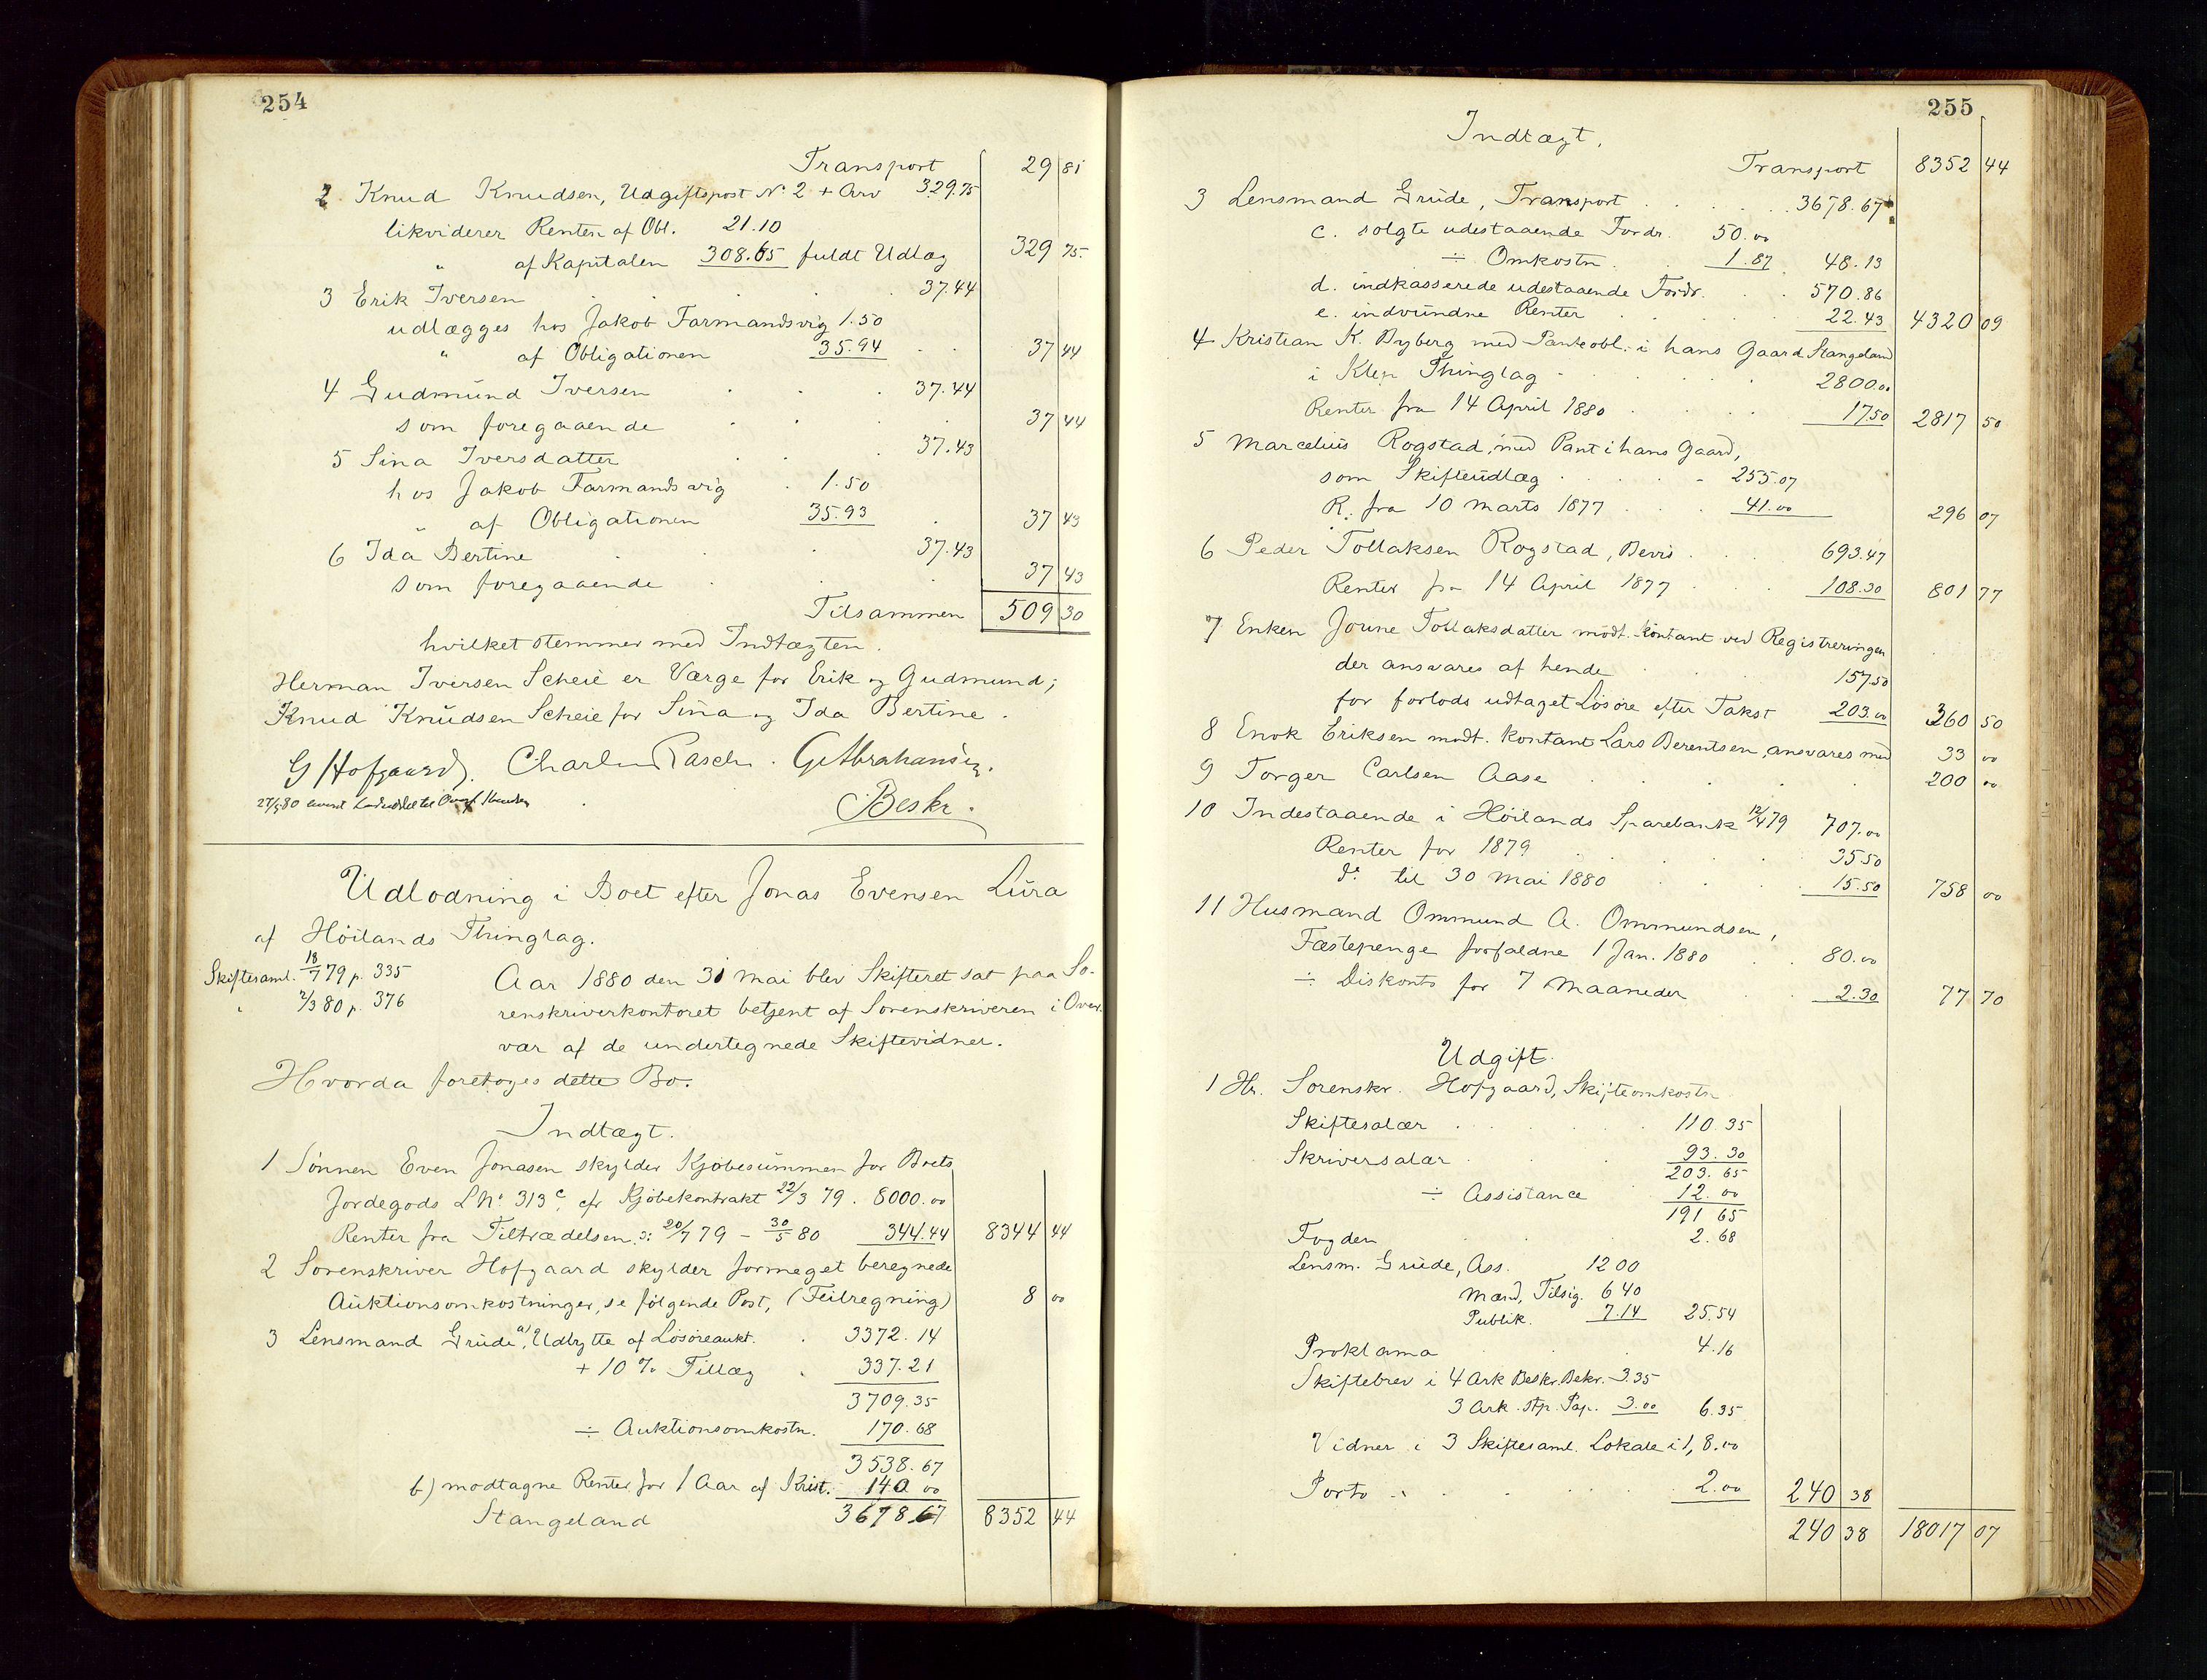 254
Transport 29 81
2 Knud Knudsen, Udgiftspost No 2 + Arv 329.75
likviderer Renten af Obl. 21.10
" af Kapitalen 308.65 fuldt Udlæg 329 75.
3 Erik Iversen 37.44
udlægges hos Jakob Farmandsvig 1.50
" af Obligationen 35.94 37 44
4 Gudmund Iversen 37.44
som foregaaende 37 44
5 Sina Iversdatter 37.43
hos Jakob Farmandsvig 1.50
" af Obligationen 35.93 37 43
6 Ida Bertine 37.43
som foregaaende 37 43
Tilsammen 509 30
hvilket stemmer med Indtægten.
Herman Iversen Scheie er Værge for Erik og Gudmund;
Knud Knudsen Scheie for Sina og Ida Bertine.
G Hofgaard. Charles Rasch. G Abrahansen.
27/5 80 til Knudsen
Beskr.
Udlodning i Boet efter Jonas Evensen Lura
af Höilands Thinglag.
Skiftesaml. 18/7 79 p. 335
" 2/3 80 p. 376
Aar 1880 den 31 Mai blev Skifteret sat paa So-
renskriverkontoret betjent af Sorenskriveren i Over-
vær af de undertegnede Skiftevidner.
Hvorda foretoges dette Bo.
Indtægt.
1 Sönnen Even Jonasen skylder Kjöbesummen for Boets
Jordegods L No 313 c, cfr Kjöbekontrakt 22/3 79. 8000.00
Renter fra Tiltrædelsen ɔ: 20/7 79 – 30/5 80 344.44 8344 44
2 Sorenskriver Hofgaard skylder formeget beregnede
Auktionsomkostninger, se fölgende Post, (Feilregning) 8 00
3 Lensmand Grude, a) Udbytte af Lösöreaukt. 3372.14
+ 10 % Tillæg 337.21
3709.35
÷ Auktionsomkostn. 170.68
3538.67
b) modtagne Renter for 1 Aar af Krist. 140 00
Stangeland 3678.67 8352 44
255
Indtægt.
Transport 8352 44
3 Lensmand Grude, Transport 3678.67
c. solgte udestaaende Fordr. 50.00
÷ Omkostn. 1.87 48.13
d. indkasserede udestaaende Fordr. 570.86
e. indvundne Renter 22.43 4320 09
4 Kristian K. Byberg med Panteobl. i hans Gaard Stangeland
i Klep Thinglag 2800.00
Renter fra 14 April 1880 17.50 2817 50
5 Marcelius Rogstad, med Pant i hans Gaard,
som Skifteudlæg 255.07
R. fra 10 Marts 1877 41.00 296 07
6 Peder Tollaksen Rogstad, Bevis 693.47
Renter fra 14 April 1877 108.30 801 77
7 Enken Jorine Tollaksdatter modt. kontant ved Registreringen
der ansvares af hende 157.50
for forlods udtaget Lösöre efter Takst 203.00 360 50
8 Enok Eriksen modt. kontant Lars Berentsen, ansvares med 33 00
9 Torger Carlsen Aase 200 00
10 Indestaaende i Höilands Sparebank 12/4 79 707.00
Renter for 1879 35.50
do til 30 Mai 1880 15.50 758 00
11 Husmand Ommund A. Ommundsen,
Fæstepenge forfaldne 1 Jan. 1880 80.00
÷ Diskonto for 7 Maaneder 2.30 77 70
Udgift.
1 Hr. Sorenskr. Hofgaard, Skifteomkostn
Skiftesalær 110.35
Skriversalær 93.30
203.65
÷ Assistance 12.00
191 65
Fogden 2.68
Lensm. Grude, Ass. 12 00
Mænd, Tilsig. 6 40
Publik. 7.14 25.54
Proklama 4.16
Skiftebrev i 4 Ark Beskr. Bekr. 3.35
3 Ark. stp. Pap. 3.00 6.35
Vidner i 3 Skiftesaml. Lokale i 1, 8.00
Porto 2.00 240 38
240 38 18017 07